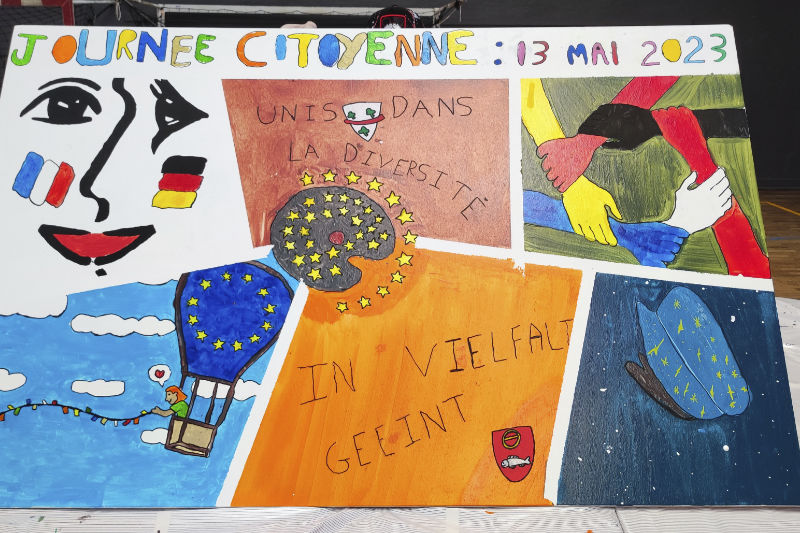 JOURNEE CITOYENNE : 13 MAI 2023
UNIS DANS
LA DIVERSITÉ
IN VIELFALT
GEEINT